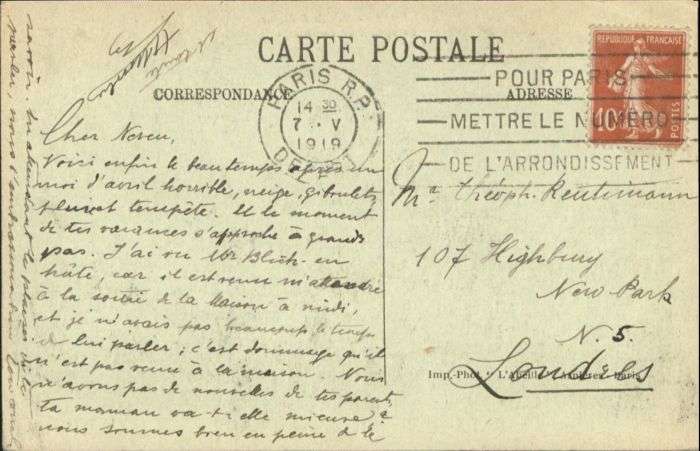 CARTE POSTALE
CORRESPONDANCE
ADRESSE
PARIS R.P.
14 30
7 - V
1919
DEPART
POUR PARIS
METTRE LE NUMÉRO
DE L'ARRONDISSEMENT
REPUBLIQUE FRANÇAISE
10
POSTES
Cher Neveu,
Voici enfin le beau temps après un
moi d'avril horrible, neige, giboulets,
pluie et tempête. Et le moment
de tes vacances s'approche à grands
pas. J'ai vu Mr en
hâte, car il est venu m'attendre
à la sortie de la Maison à midi,
et je n'avais pas beaucoup le temps
de lui parler ; c'est dommage qu'il
n'est pas venu à la maison. Nous
n'avons pas de nouvelles de tes parents,
ta maman va-t-elle mieux ?
nous sommes bien en peine de le
savoir. En attendant le plaisir de te
parler nous t'embrassons
Mr Théoph. Reutimann
107 Highbury
New Park
N. 5.
Londres
Imp.-Phot. L'Abeille Asnières-Paris